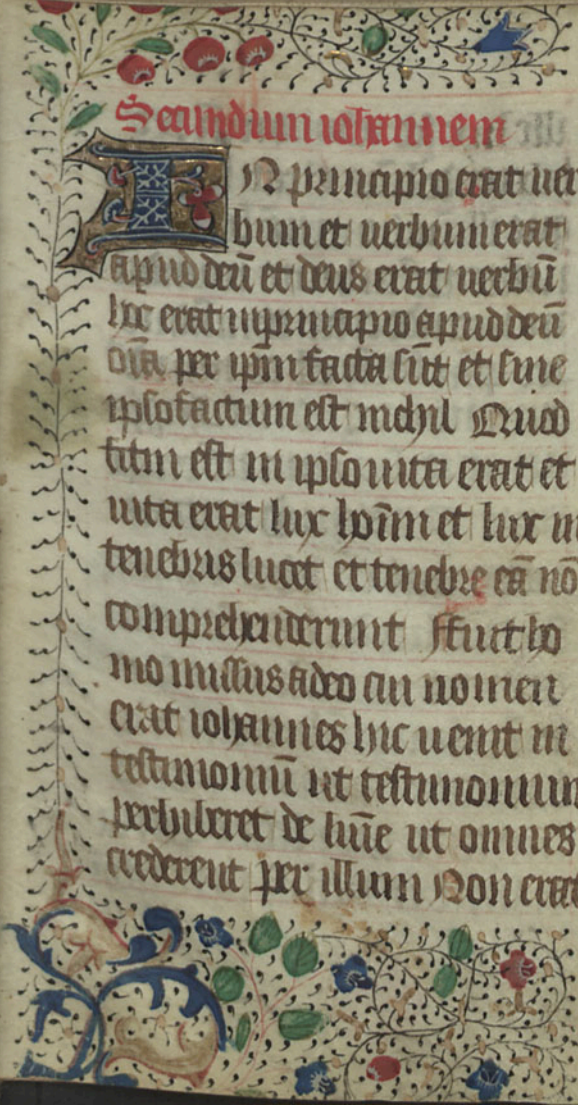 Secundum iohannem
IN principio erat uer
bum et uerbum erat
apud deū et deus erat uerbū
hoc erat in principio apud deū
oīa per ipm̄ facta sūt et sine
ipso factum est nichil Quod
fctm est in ipso uita erat et
uita erat lux hoīm et lux in
tenebris lucet et tenebre eā nō
comprehenderunt ffuit ho
mo missus a deo cui nomen
erat iohannes hic uenit in
testimoniū ut testimonium
perhiberet de lūīe ut omnes
crederent per illum Non erat